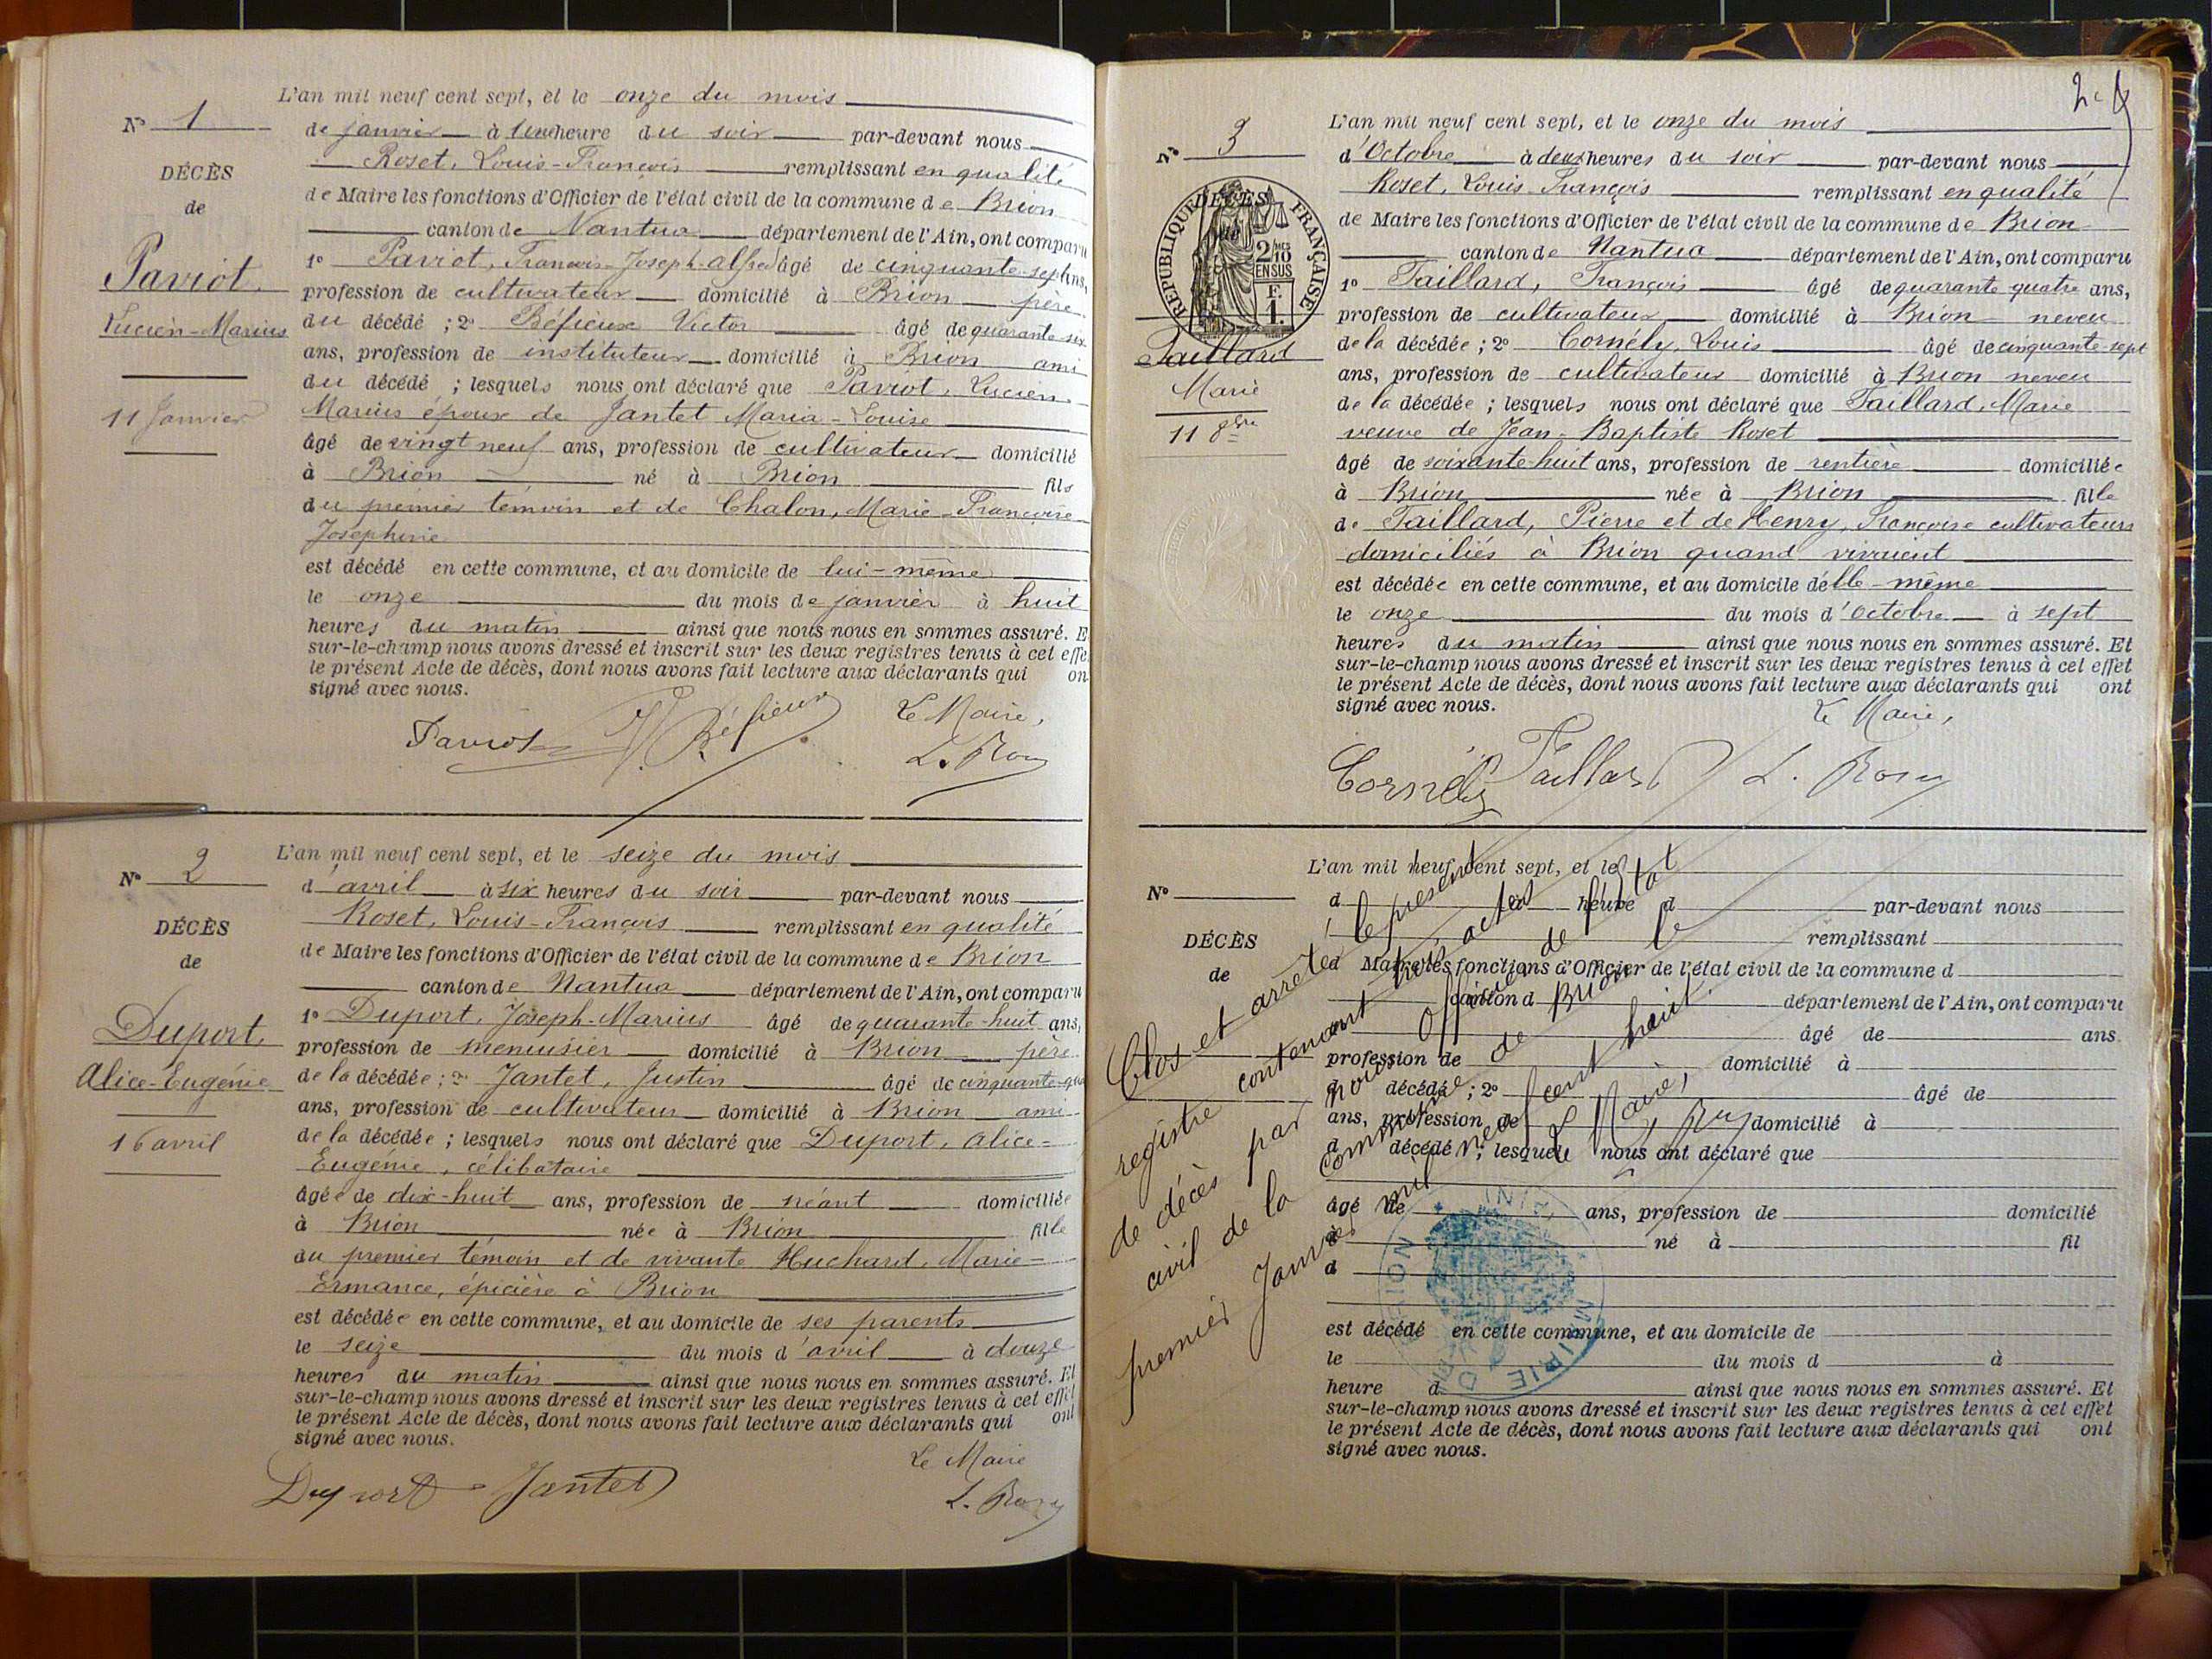 L'an mil neuf cent sept, et le onze du mois
N° 1
de janvier à une heure du soir par-devant nous
Roset, Louis-François remplissant en qualité
DÉCÈS
de Maire les fonctions d'Officier de l'état civil de la commune de Brion
de
canton de Nantua département de l'Ain, ont comparu
Paviot,
1° Paviot, François-Joseph-Alfred âgé de cinquante-sept ans,
profession de cultivateur domicilié à Brion père
Lucien-Marius
du décédé ; 2° Béfieux Victor âgé de quarante-six
ans, profession de instituteur domicilié à Brion ami
du décédé ; lesquels nous ont déclaré que Paviot, Lucien
11 Janvier
Marius époux de Jantet Maria-Louise
âgé de vingt neuf ans, profession de cultivateur domicilié
à Brion né à Brion fils
du premier témoin et de Chalon, Marie-Françoise
Josephine
est décédé en cette commune, et au domicile de lui-même
le onze du mois de janvier à huit
heures du matin ainsi que nous nous en sommes assuré. E
sur-le-champ nous avons dressé et inscrit sur les deux registres tenus à cet effe
le présent Acte de décès, dont nous avons fait lecture aux déclarants qui on
signé avec nous.
Le Maire,
Paviot V. Béfieux L. Roset
L'an mil neuf cent sept, et le seize du mois
N° 2
d'avril à six heures du soir par-devant nous
Roset, Louis-François remplissant en qualité
DÉCÈS
de Maire les fonctions d'Officier de l'état civil de la commune de Brion
de
canton de Nantua département de l'Ain, ont comparu
Duport,
1° Duport, Joseph-Marius âgé de quarante-huit ans,
profession de menuisier domicilié à Brion père
Alice-Eugénie
de la décédée ; 2° Jantet, Justin âgé de cinquante-qu
ans, profession de cultivateur domicilié à Brion ami
16 avril
de la décédée ; lesquels nous ont déclaré que Duport, Alice-
Eugénie, célibataire
âgée de dix-huit ans, profession de néant domiciliée
à Brion née à Brion fille
du premier témoin et de vivante Huchard, Marie-
Ermance, épicière à Brion
est décédée en cette commune, et au domicile de ses parents
le seize du mois d'avril à douze
heures du matin ainsi que nous nous en sommes assuré. Et
sur-le-champ nous avons dressé et inscrit sur les deux registres tenus à cet effet
le présent Acte de décès, dont nous avons fait lecture aux déclarants qui ont
signé avec nous.
Le Maire
Duport Jantet L. Roset
2
L'an mil neuf cent sept, et le onze du mois
N° 3
d'Octobre à deux heures du soir par-devant nous
Roset, Louis-François remplissant en qualité
DÉCÈS
RÉPUBLIQUE FRANÇAISE
2/10 EN SUS
F. 1.
de Maire les fonctions d'Officier de l'état civil de la commune de Brion
canton de Nantua département de l'Ain, ont comparu
1° Taillard, François âgé de quarante quatre ans,
profession de cultivateur domicilié à Brion neveu
Taillard
de la décédée ; 2° Cornély, Louis âgé de cinquante-sept
Marie
ans, profession de cultivateur domicilié à Brion neveu
de la décédée ; lesquels nous ont déclaré que Taillard, Marie
11 8bre
veuve de Jean-Baptiste Roset
âgé de soixante-huit ans, profession de rentière domiciliée
à Brion née à Brion fille
de Taillard, Pierre et de Henry, Françoise cultivateurs
domiciliés à Brion quand vivaient
est décédée en cette commune, et au domicile d'elle-même
le onze du mois d'Octobre à sept
heures du matin ainsi que nous nous en sommes assuré. Et
sur-le-champ nous avons dressé et inscrit sur les deux registres tenus à cet effet
le présent Acte de décès, dont nous avons fait lecture aux déclarants qui ont
signé avec nous.
Le Maire,
Cornély Taillard L. Roset
L'an mil neuf cent sept, et le
N°
d à heure d par-devant nous
remplissant
DÉCÈS
d Maire les fonctions d'Officier de l'état civil de la commune d
de
canton d département de l'Ain, ont comparu
âgé de ans
profession de domicilié à
d décédé ; 2° âgé de
ans, profession de domicilié à
d décédé ; lesquels nous ont déclaré que
âgé de ans, profession de domicilié
à né à fil
d
est décédé en cette commune, et au domicile de
le du mois d à
heure d ainsi que nous nous en sommes assuré. Et
sur-le-champ nous avons dressé et inscrit sur les deux registres tenus à cet effet
le présent Acte de décès, dont nous avons fait lecture aux déclarants qui ont
signé avec nous.
Clos et arrêté le présent
registre contenant trois actes
de décès par nous officier de l'état
civil de la commune de Brion le
premier Janvier mil neuf cent huit.
Le Maire,
MAIRIE DE BRION